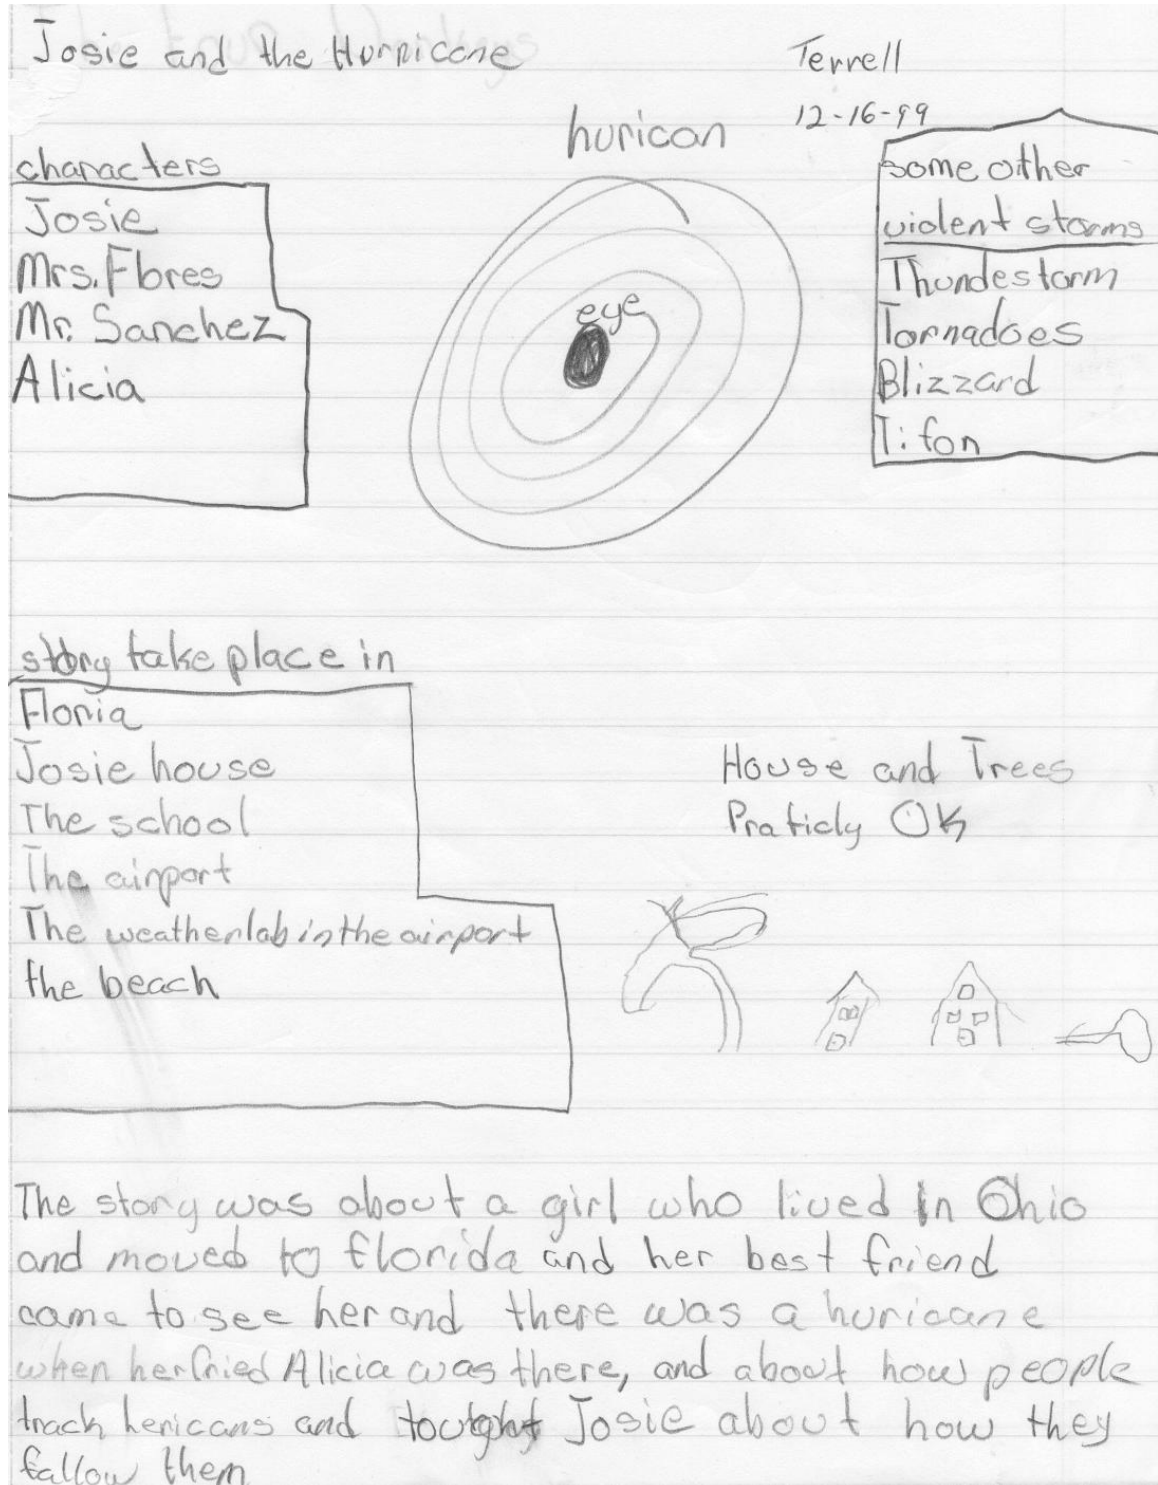 Josie and the Hurricane
Terrell
12-16-99
hurican
characters
Josie
Mrs. Flores
Mr. Sanchez
Alicia
eye
some other
violent storms
Thundestorm
Tornadoes
Blizzard
Tifon
story take place in
Floria
Josie house
The school
The airport
The weather lab in the airport
the beach
House and Trees
Praticly OK
The story was about a girl who lived in Ohio
and moved to florida and her best friend
came to see her and there was a huricane
when her fried Alicia was there, and about how people
track hericans and tought Josie about how they
fallow them